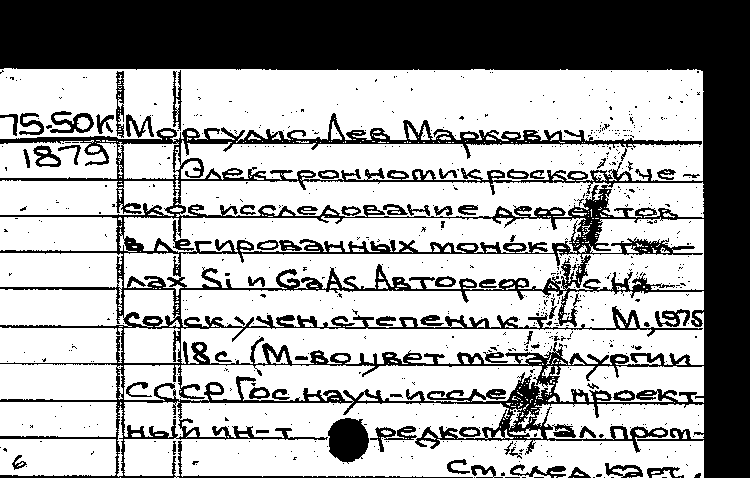 75-50К Моргулис, Лев Маркович.
1879
Электронномикроскопиче-
ское исследование дефектов
в легированных монокристал-
лах Si и GaAs. Автореф. дис. на
соиск. учен. степени к.т.н. М., 1975
18 с. (М-во цвет. металлургии
СССР. Гос. науч.-исслед. и проект-
ный ин-т редкометал. пром-
См. след. карт.
6